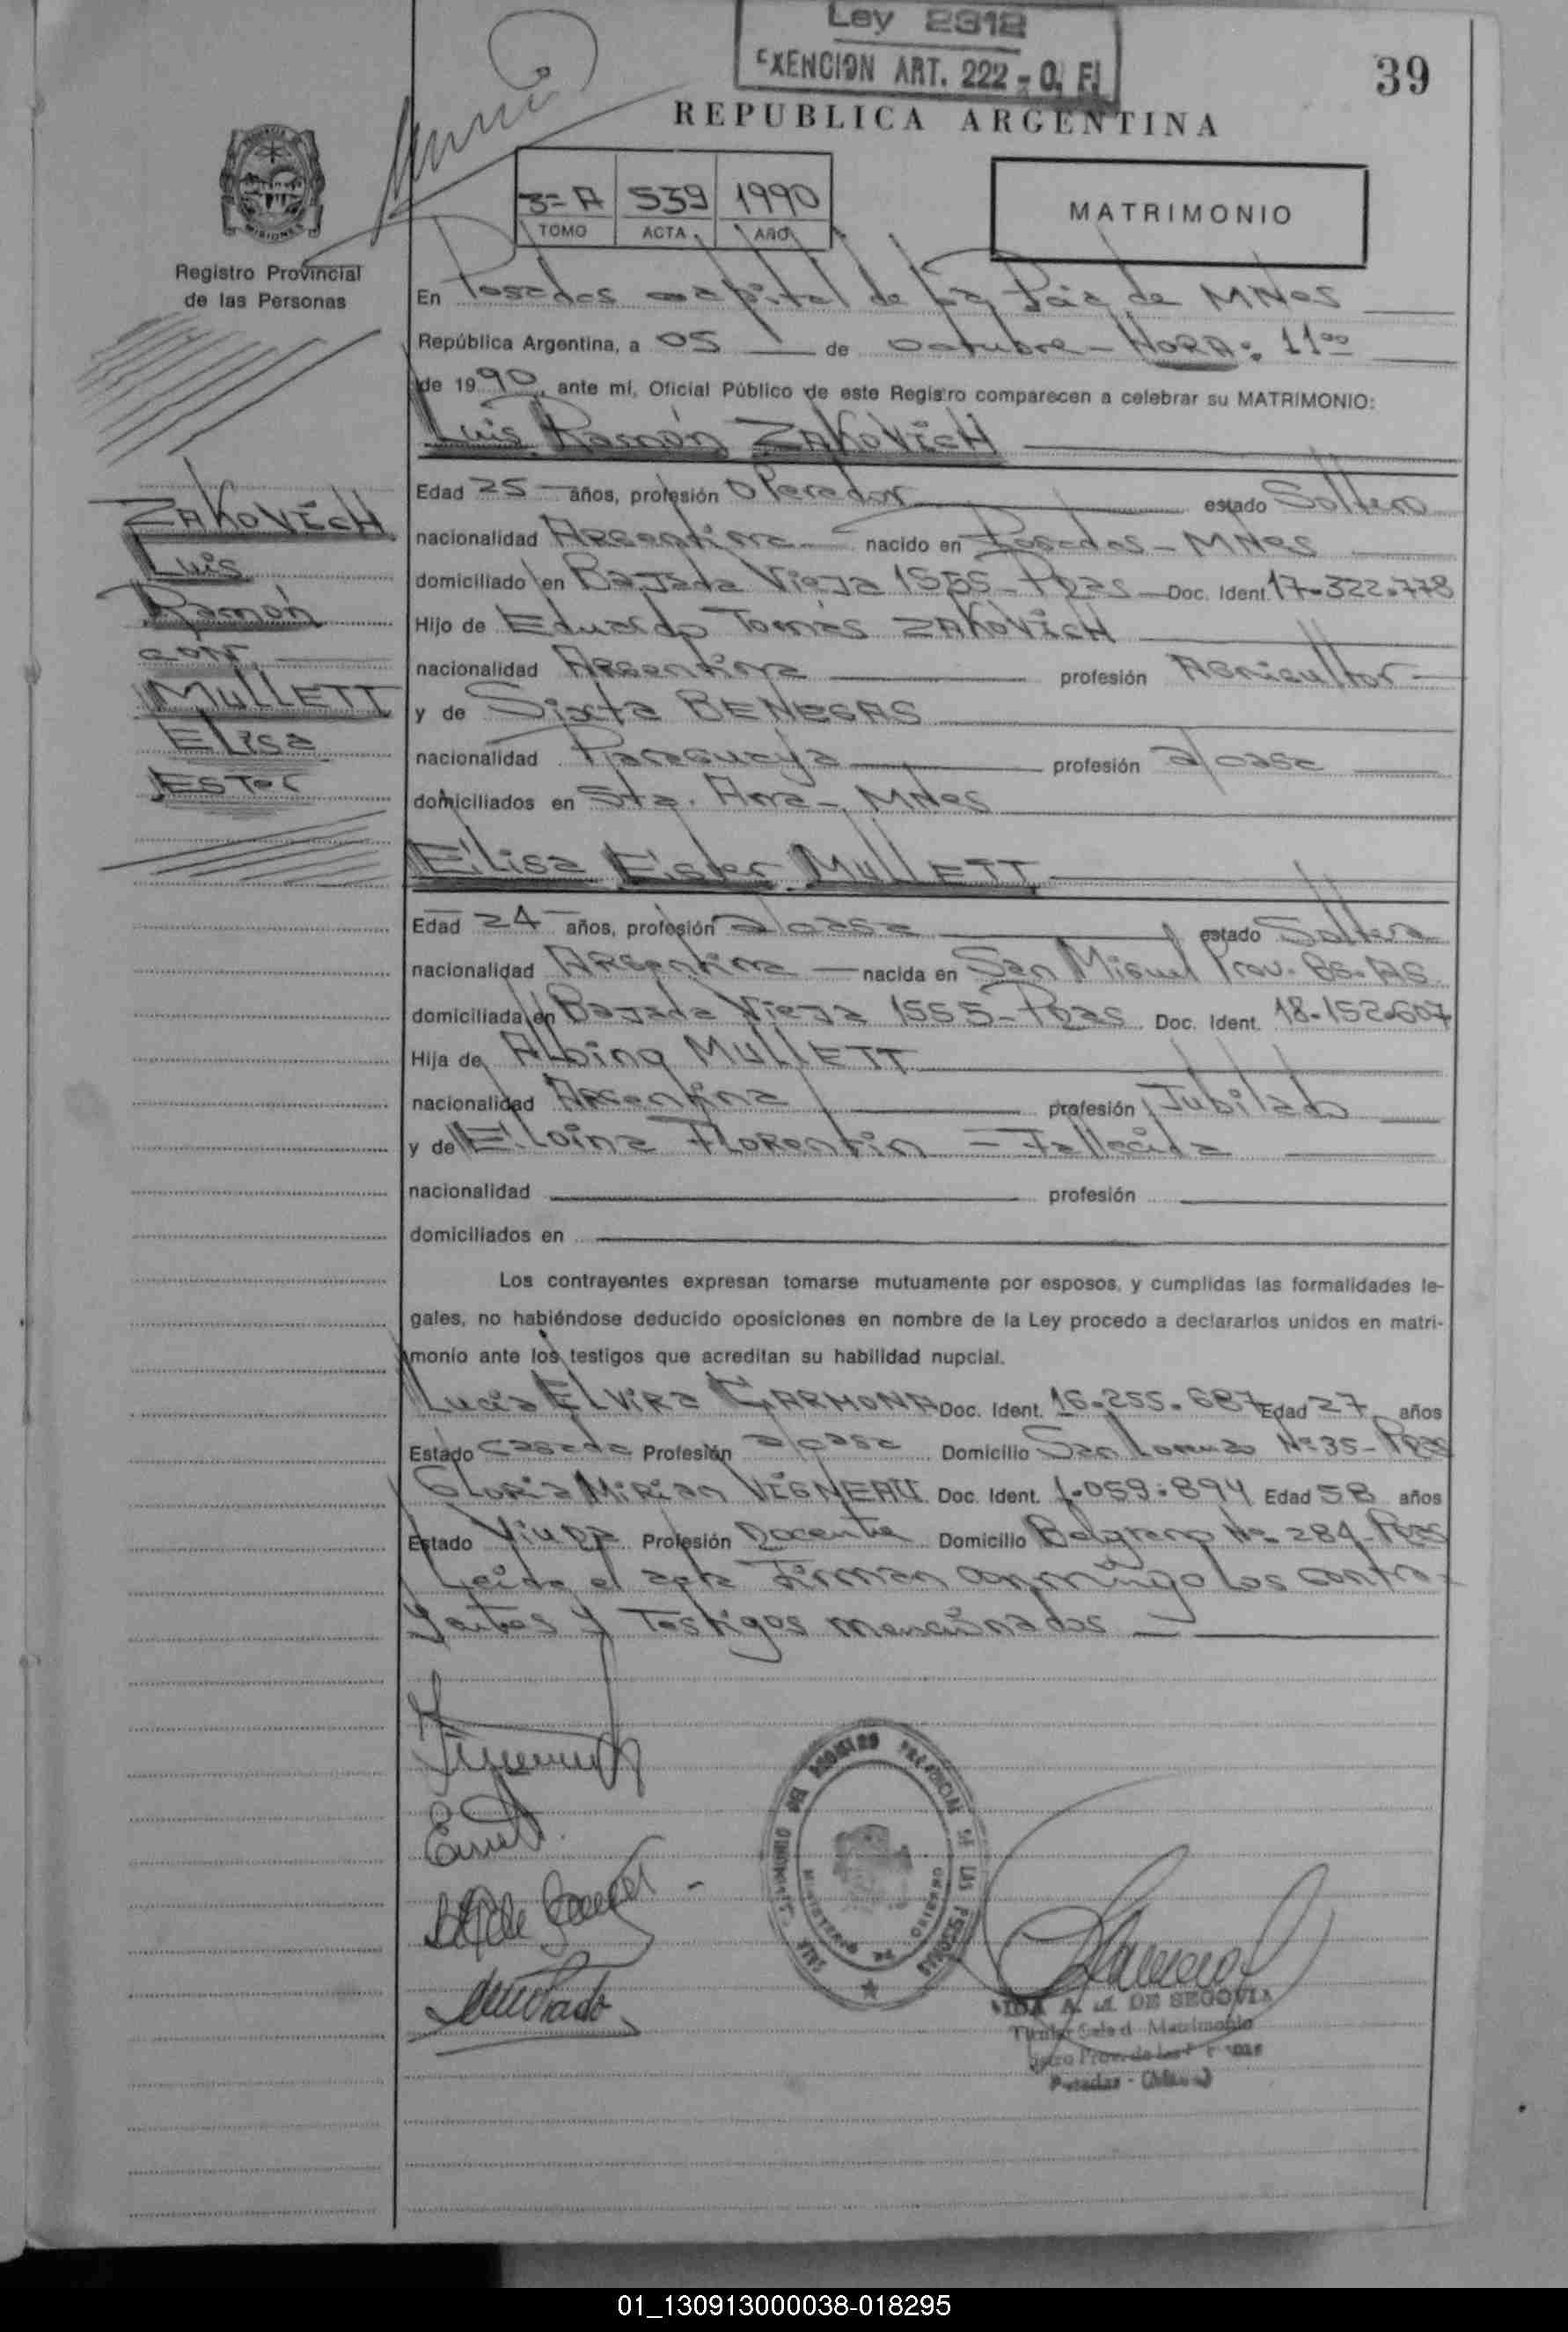 Ley 2312
EXENCION ART. 222 - O, F.
39
REPUBLICA ARGENTINA
3= A 539 1990
TOMO ACTA AÑO
MATRIMONIO
MISIONES
Registro Provincial
de las Personas
En Posadas capital de la Pcia de MNes
República Argentina, a 05 de octubre - HORA: 11⁰⁰
de 1990, ante mí, Oficial Público de este Registro comparecen a celebrar su MATRIMONIO:
Luis Ramón ZAKOVICH
Edad 25 años, profesión Operador estado Soltero
nacionalidad Argentina nacido en Posadas - MNes
domiciliado en Bajada Vieja 1555 - Pdas Doc. Ident. 17.322.778
Hijo de Eduardo Tomás ZAKOVICH
nacionalidad Argentina profesión Agricultor
y de Sixta BENEGAS
nacionalidad Paraguaya profesión q/casa
domiciliados en Sta. Ana - MNes
ZAKOVICH
Luis
Ramón
con
MULLETT
Elisa
Ester
Elisa Ester MULLETT
Edad 24 años, profesión q/casa estado Soltera
nacionalidad Argentina nacida en San Miguel Prov. Bs. As.
domiciliada en Bajada Vieja 1555 - Pdas Doc. Ident. 18.152.607
Hija de Albino MULLETT
nacionalidad Argentina profesión Jubilado
y de Eloina Florentin = Fallecida
nacionalidad profesión
domiciliados en
Los contrayentes expresan tomarse mutuamente por esposos, y cumplidas las formalidades le-
gales, no habiéndose deducido oposiciones en nombre de la Ley procedo a declararlos unidos en matri-
monio ante los testigos que acreditan su habilidad nupcial.
Lucia Elvira CARMONA Doc. Ident. 16.255.687 Edad 27 años
Estado Casada Profesión q/casa Domicilio San Lorenzo Nº 35 - Pdas
Gloria Mirian VIGNEAU Doc. Ident. 1.059.894 Edad 58 años
Estado Viuda Profesión Docente Domicilio Belgrano Nº 284 - Pdas
Leida el acta Firman conmigo los contra-
yentes y Testigos mencionados
REGISTRO PROVINCIAL DE LAS PERSONAS
MINISTERIO DE GOBIERNO
A. M. DE SEGOVIA
Titular Sala d Matrimonio
Posadas
01_130913000038-018295